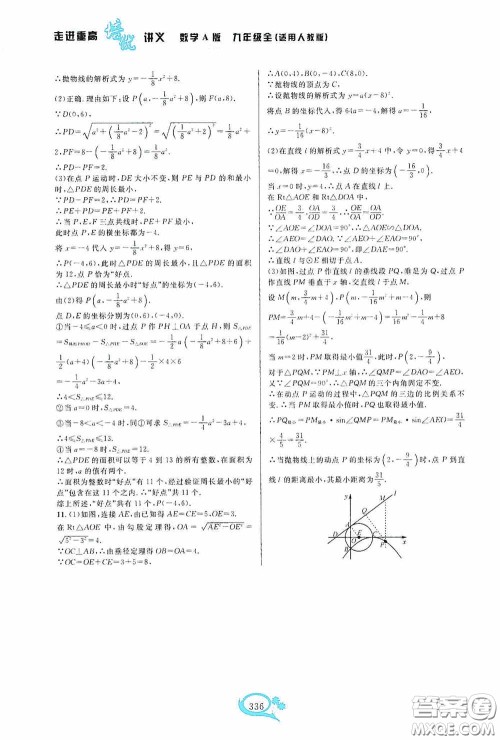 走进重高 培优 讲义 数学A版 九年级全(适用人教版)
∴抛物线的解析式为 y=-1/8x²+8.
(2)正确. 理由如下:设 P(a,-1/8a²+8),则 F(a,8).
∵D(0,6),
∴PD=√(a²+(1/8a²-2)²)=√((1/8a²+2)²)=1/8a²+2,
PF=8-(-1/8a²+8)=1/8a².
∴PD-PF=2.
(3)在点 P 运动时,DE 大小不变,则 PE 与 PD 的和最小时,△PDE 的周长最小.
∵PD-PF=2,∴PD=PF+2.
∴PE+PD=PE+PF+2.
∴当 P,E,F 三点共线时,PE+PF 最小.
此时点 P,E 的横坐标都为-4.
将 x=-4 代入 y=-1/8x²+8,得 y=6.
∴P(-4,6),此时△PDE 的周长最小,且△PDE 的面积为 12,点 P 恰为“好点”.
∴△PDE 的周长最小时“好点”的坐标为(-4,6).
由(2)得 P(a,-1/8a²+8).
①当-4≤a<0 时,
=-1/4a²-3a+4.
∴4<S△PDE≤12.
②当 a=0 时,S△PDE=4.
③当-8<a<-4 时,
∴4≤S△PDE≤13.
∴△PDE 的面积可以等于 4 到 13 的所有整数,在面积为 12 时,a 的值有两个.
∴面积为整数时“好点”有 11 个,而面积最小时的“好点”包含在这 11 个之内. ∴“好点”共 11 个.
综上所述,“好点”共有 11 个,P(-4,6).
11.(1)如图,连结 AE,由已知得 AE=CE=5,OE=3.
在 Rt△AOE 中,由勾股定理得,OA=√(AE²-OE²)=√(5²-3²)=4.
∵OC⊥AB,∴由垂径定理得 OB=OA=4.
∵OC=OE+CE=3+5=8,
∴A(0,4),B(0,-4),C(8,0).
∵抛物线的顶点为 C,
∴设抛物线的解析式为 y=a(x-8)².
将点 B 的坐标代入,得 64a=-4,解得 a=-1/16.
∴y=-1/16(x-8)².
(2)在直线 l 的解析式 y=3/4x+4 中,令 y=0,得 3/4x+4=0,解得 x=-16/3,∴点 D 的坐标为(-16/3,0).
当 x=0 时,y=4,∴点 A 在直线 l 上.
在 Rt△AOE 和 Rt△DOA 中,
∵OE/OA=3/4,OA/OD=3/4,∴OE/OA=OA/OD.
∵∠AOE=∠DOA=90°,∴△AOE∽△DOA.
∴∠AEO=∠DAO.∵∠AEO+∠EAO=90°,
∴∠DAO+∠EAO=90°,即∠DAE=90°.
∴直线 l 与⊙E 相切于点 A.
(3)如图,过点 P 作直线 l 的垂线段 PQ,垂足为 Q,过点 P 作直线 PM 垂直于 x 轴,交直线 l 于点 M.
设 M(m,3/4m+4),P(m,-1/16m²+m-4),则
PM=3/4m+4-(-1/16m²+m-4)=1/16m²-1/4m+8=1/16(m-2)²+31/4.
当 m=2 时,PM 取得最小值31/4,此时,P(2,-9/4).
对于△PQM,∵PM⊥x 轴,∴∠QMP=∠DAO=∠AEO.
又∵∠PQM=90°,∴△PQM 的三个内角固定不变.
∴在动点 P 运动的过程中,△PQM 的三边的比例关系不变. ∴当 PM 取得最小值时,PQ 也取得最小值.
∴PQ最小=PM最小·sin∠QMP=PM最小·sin∠AEO=31/4×4/5=31/5.
∴当抛物线上的动点 P 的坐标为(2,-9/4)时,点 P 到直线 l 的距离最小,其最小距离为31/5.
336
答案圈
MXQE.COM